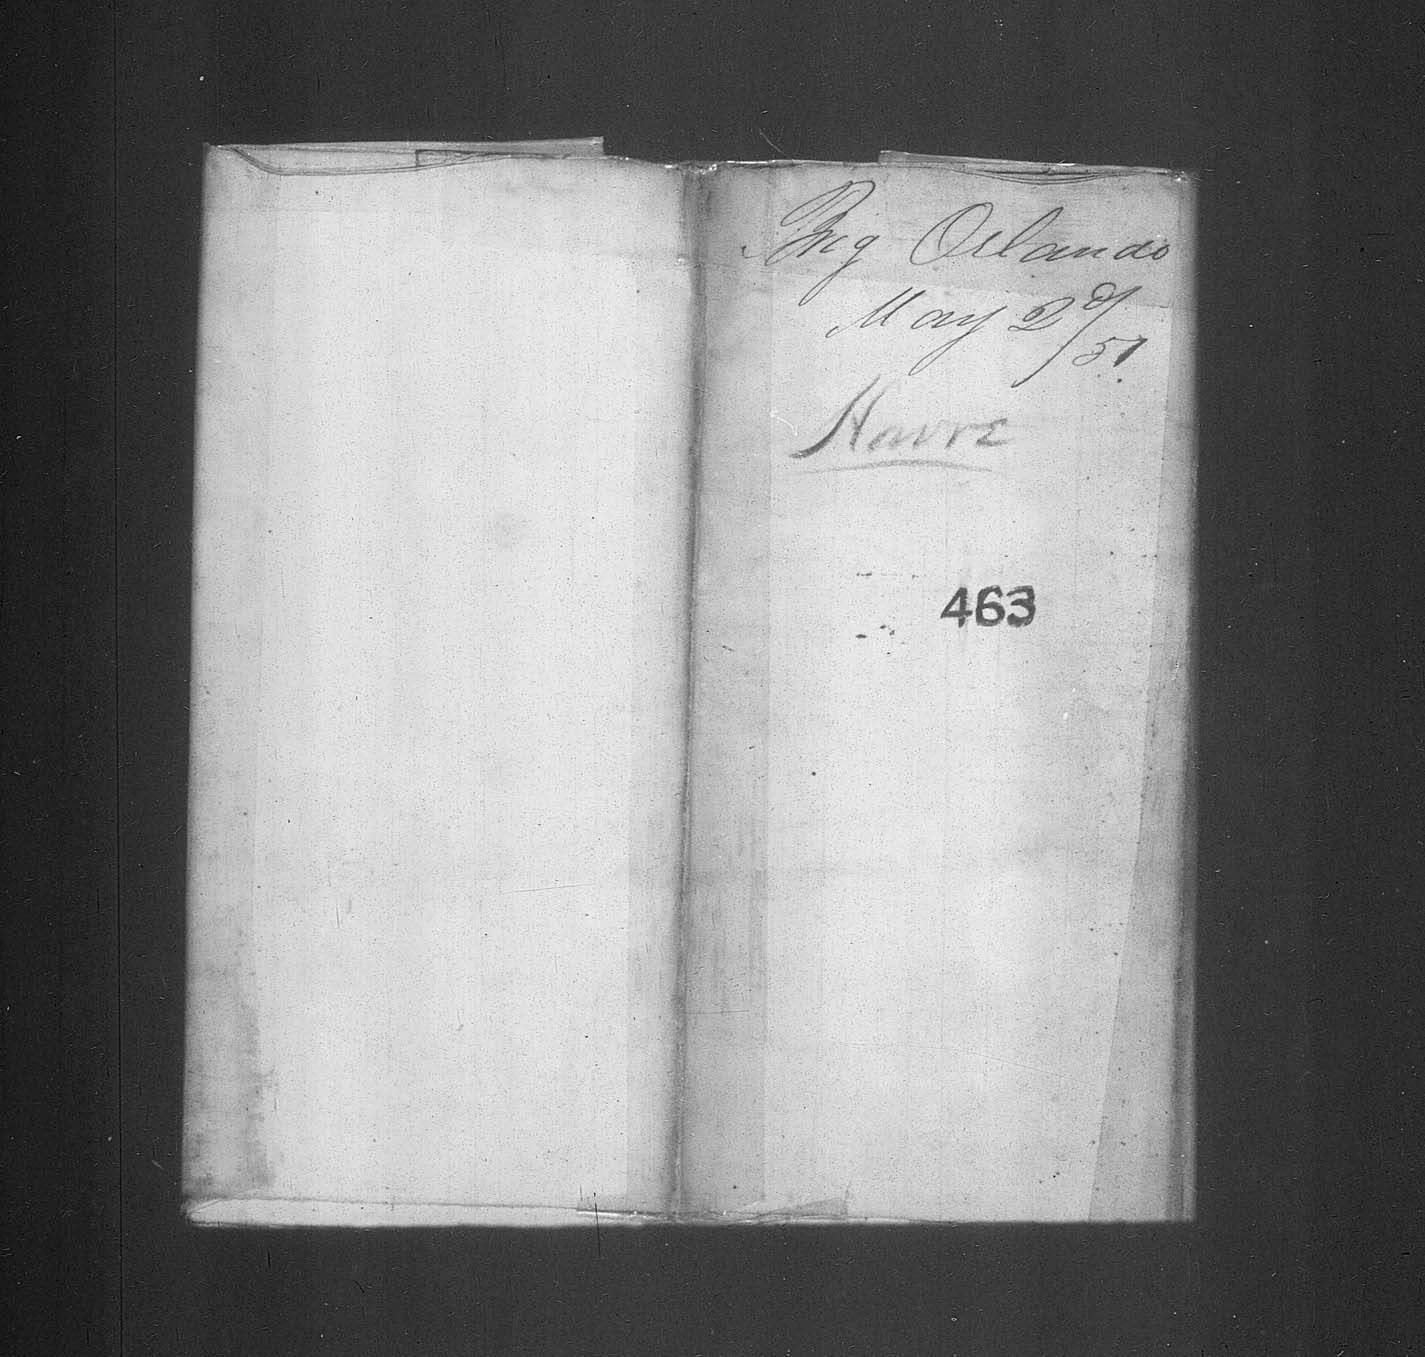 Brig Orlando
May 2d/51
Havre
463